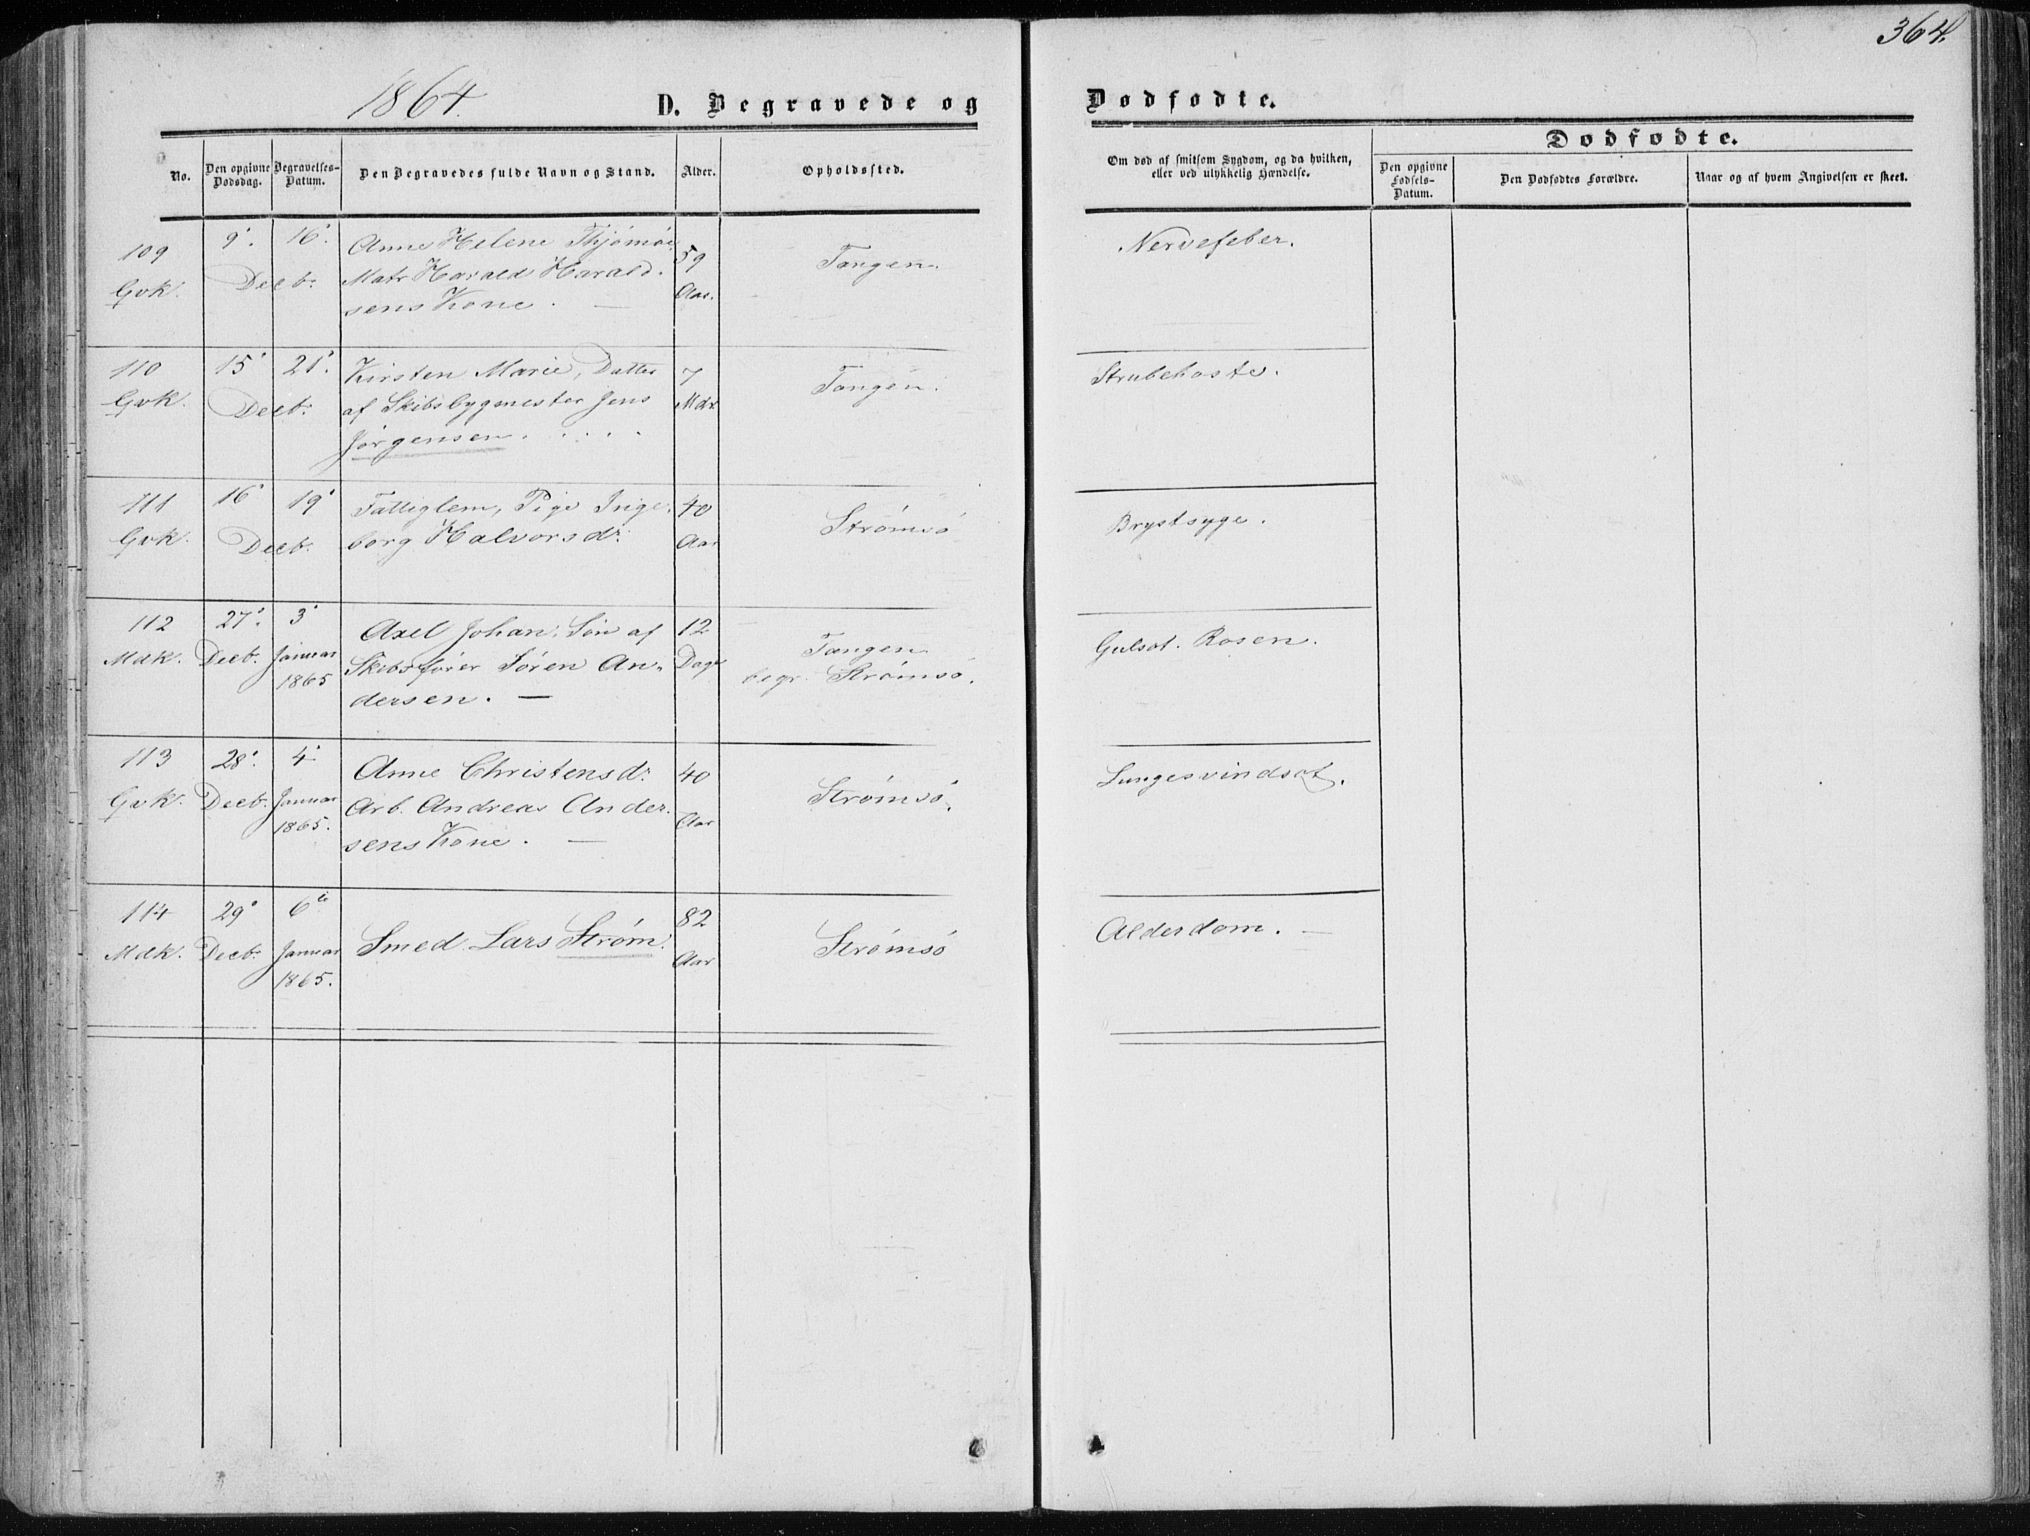 364.
1864.
D. Begravede og
Dødfødte.
Dødfødte.
No.
Den opgivne Dødsdag.
Begravelses-Datum.
Den Begravedes fulde Navn og Stand.
Alder.
Opholdssted.
Om død af smitsom Sygdom, og da hvilken,
eller ved ulykkelig Hændelse.
Den opgivne Fødsels-Datum.
Den Dødfødtes Forældre.
Naar og af hvem Angivelsen er skeet.
109 9. 16. Anne Helene Thjømøe 59 Tangen. Nervefeber.
Gvk. Decb. Matr Harald Harald-
sens Kone. — Aar.
110 15 21. Kirsten Marie, Datter 7 Tangen. Strubehoste.
Gvk. Decb. af Skibsbygmester Jens Mdr
Jørgensen.
111 16 19 Fattiglem, Pige Inge- 40 Strømsø Brystsyge.
Gvk. Decb. borg Halvorsdr. Aar
112 27. 3 Axel Johan. Søn af 12 Tangen Gulsot. Rosen.
Mdk. Decb. Januar Skibsfører Søren An- Dage begr. Strømsø.
1865 dersen. —
113 28. 4 Anne Christensdr. 40 Strømsø. Lungesvindsot.
Gvk. Decb. Januar Arb. Andreas Ander- Aar
1865. sens Kone. —
114 29 6te Smed Lars Strøm. 82 Strømsø Alderdom. —
Mdk. Decb. Januar Aar
1865.